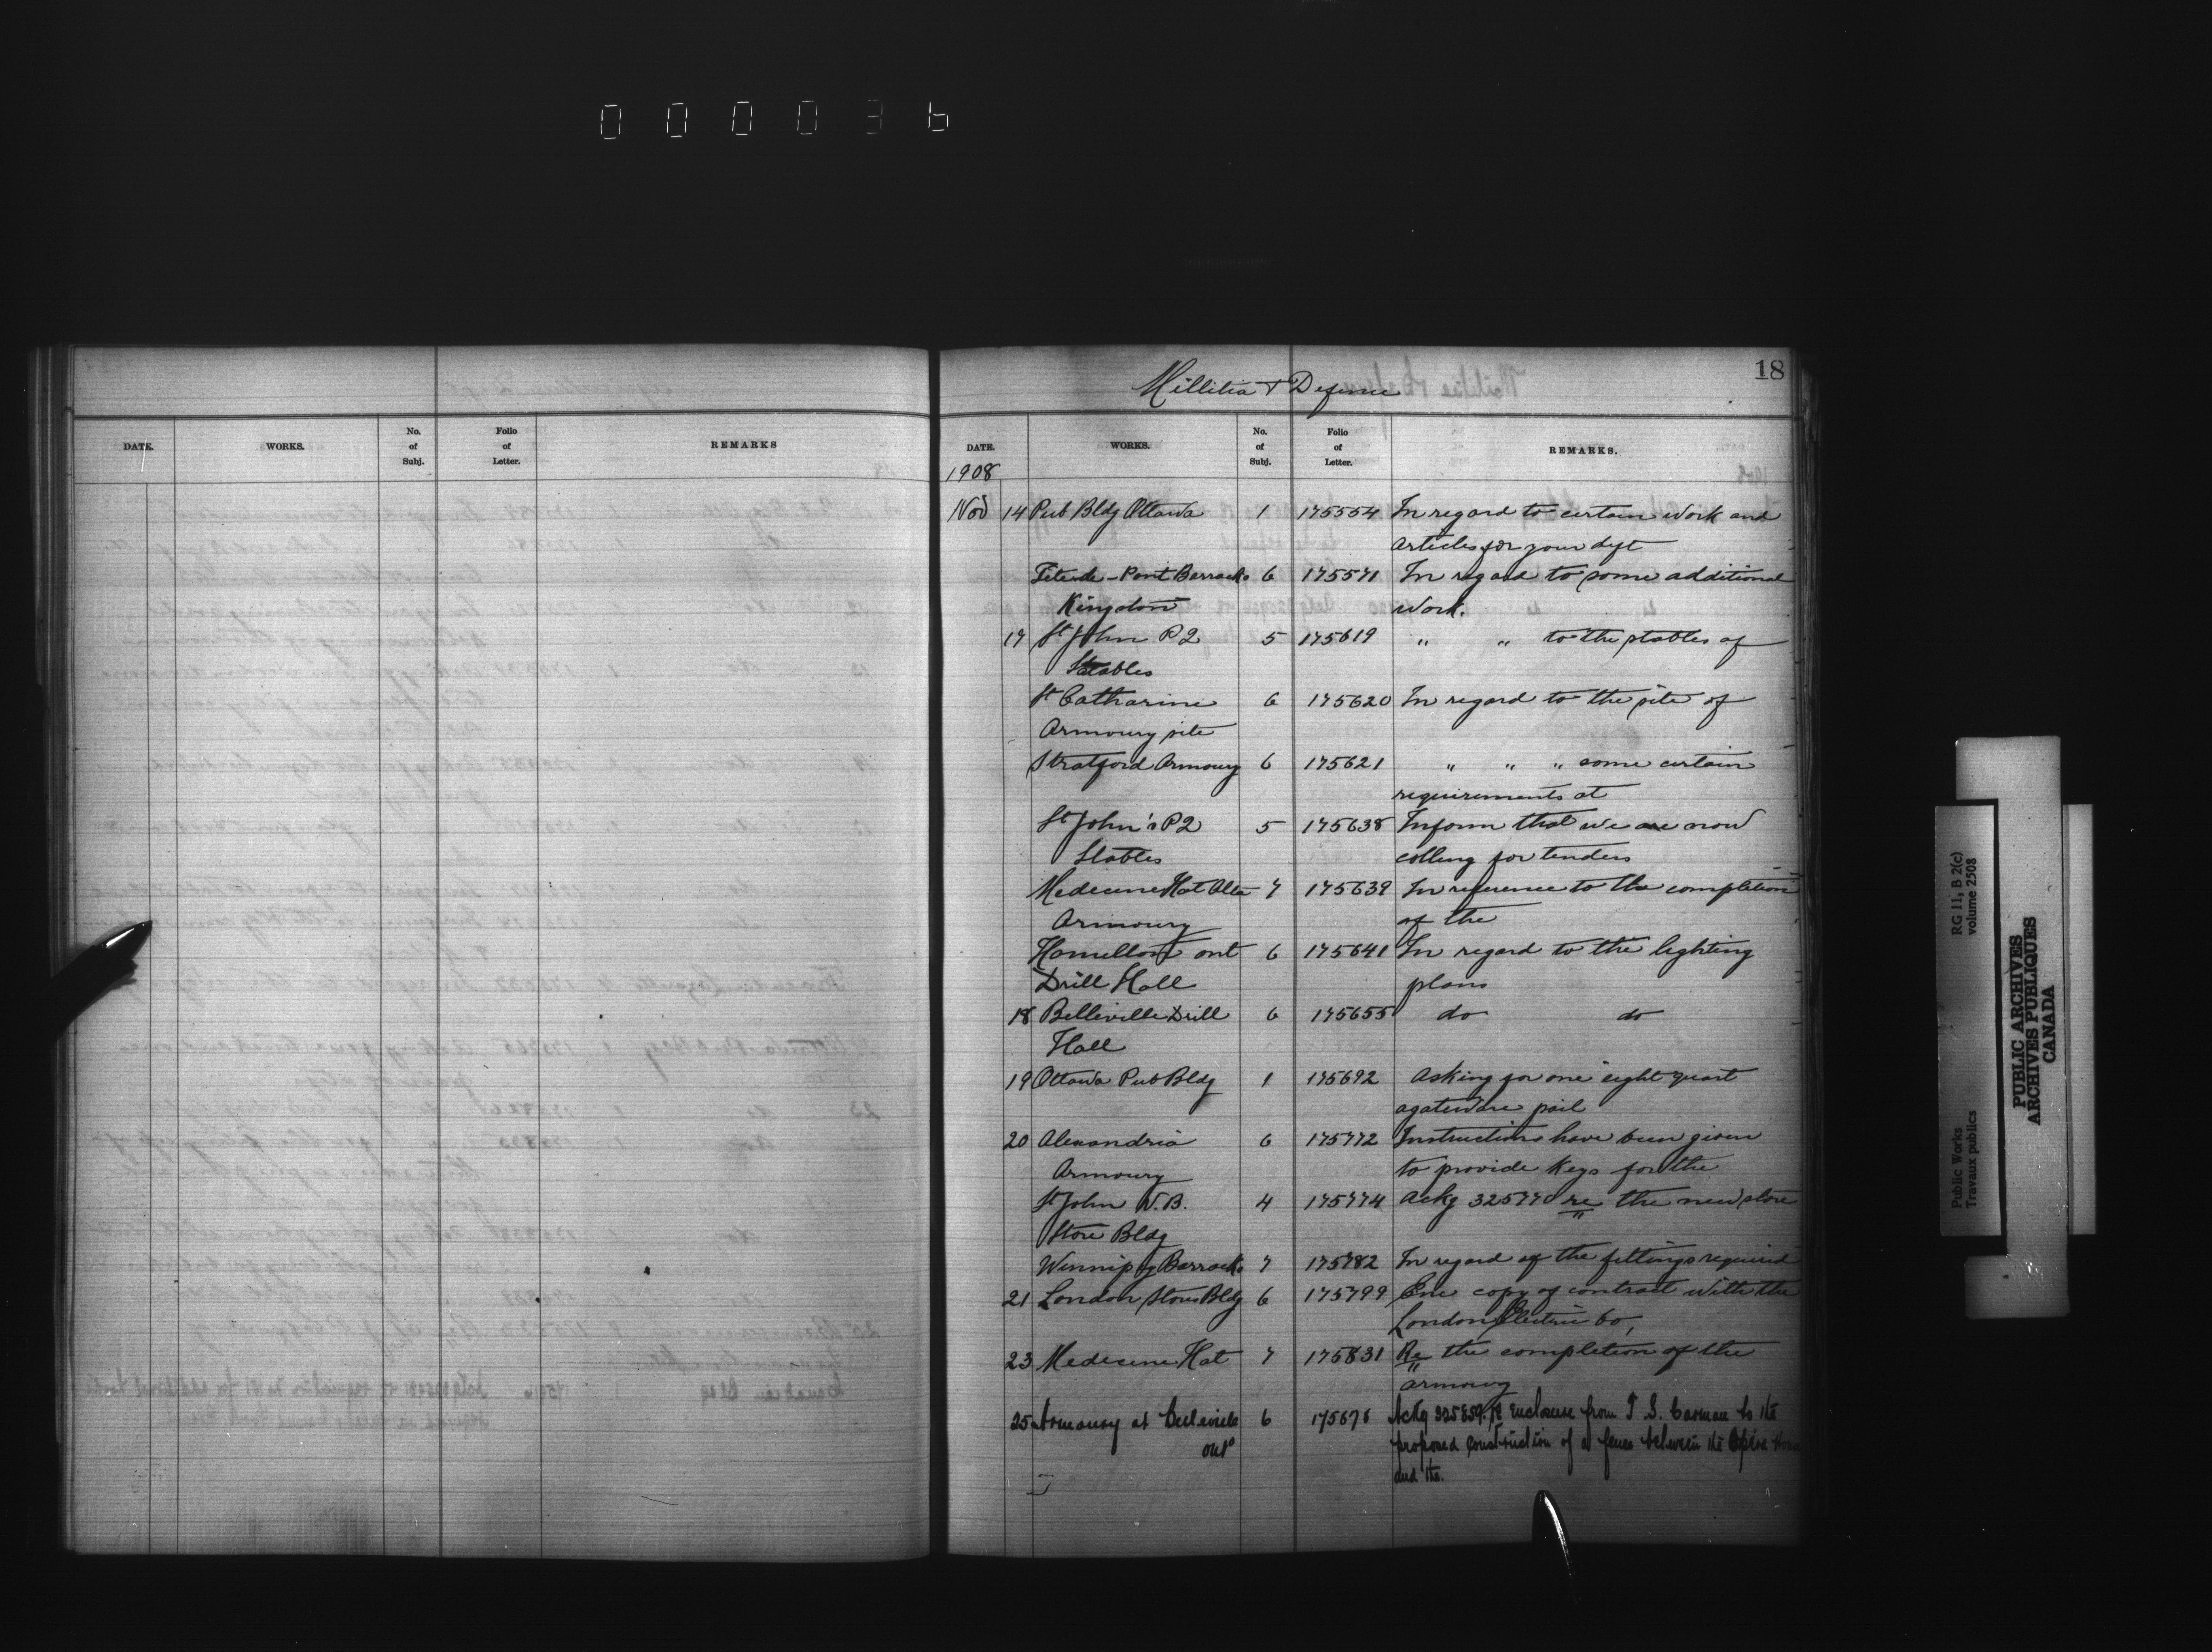 000036
18
Millitia & Defence
DATE. WORKS. No. of Subj. Folio of Letter. REMARKS
DATE. WORKS. No. of Subj. Folio of Letter. REMARKS.
1908
Nov 14 Pub Bldg Ottawa 1 175554 In regard to certain work and
articles for your dept
Tete-de-Pont Barracks 6 175571 In regard to some additional
Kingston work.
17 St John P2 5 175619 " " to the stables of
Stables
St Catharine 6 175620 In regard to the site of
Armoury site
Stratford Armoury 6 175621 " " " some certain
requirements at
St John's P2 5 175638 Inform that we are now
Stables calling for tenders
Medecine Hat Alta 7 175639 In reference to the completion
Armoury of the
Hamilton ont 6 175641 In regard to the lighting
Drill Hall plans
18 Belleville Drill 6 175655 do do
Hall
19 Ottawa Pub Bldg 1 175692 Asking for one eight quart
agateware pail
20 Alexandria 6 175772 Instructions have been given
Armoury to provide Keys for the
St John N.B. 4 175774 Ackg 325770 re the new store
Store Bldg
Winnipeg Barracks 7 175782 In regard of the fittings required
21 London Stores Bldg 6 175799 Enc copy of contract with the
London Electric Co,
23 Medecine Hat 7 175831 Re the completion of the
armoury
25 Armoury at Belleville 6 175876 Ackg 325859. re enclosure from T. S. Carman to the
ont proposed construction of a fence between the Opera House
and the.
Public Works RG 11, B 2(c)
Travaux publics volume 2508
PUBLIC ARCHIVES
ARCHIVES PUBLIQUES
CANADA